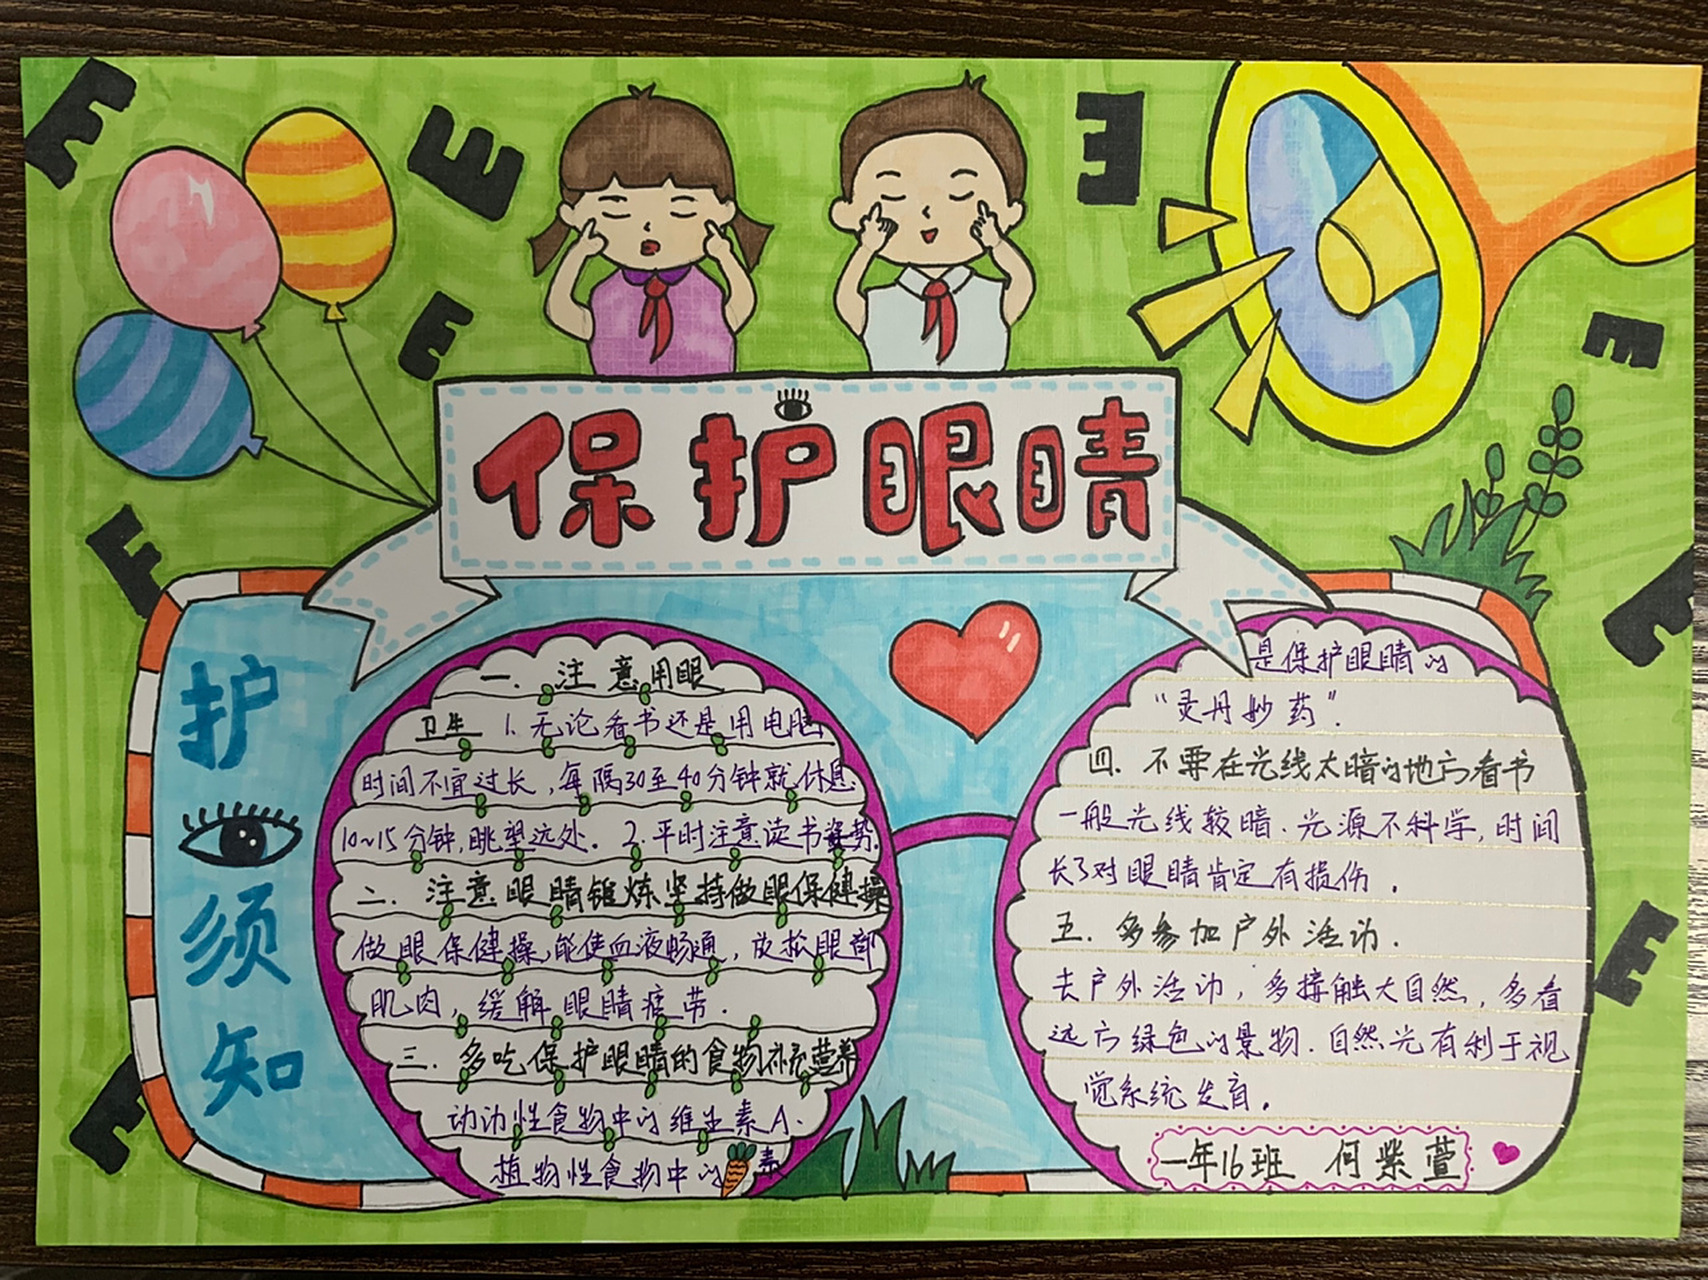 保护眼睛
护
须
知
一. 注意用眼
卫生 1.无论看书还是用电脑
时间不宜过长,每隔30至40分钟就休息
10~15分钟,眺望远处. 2.平时注意读书姿势.
二. 注意眼睛锻炼坚持做眼保健操
做眼保健操,能使血液畅通,放松眼部
肌肉,缓解眼睛疲劳.
三. 多吃保护眼睛的食物补充营养
动动性食物中的维生素A.
植物性食物中的 素
是保护眼睛的
“灵丹妙药”.
四. 不要在光线太暗的地方看书
一般光线较暗.光源不科学,时间
长了对眼睛肯定有损伤.
五. 多参加户外活动.
去户外活动,多接触大自然,多看
远方绿色的景物.自然光有利于视
觉系统发育.
一年16班 何紫萱
E
E
E
E
E
E
E
E
E
E